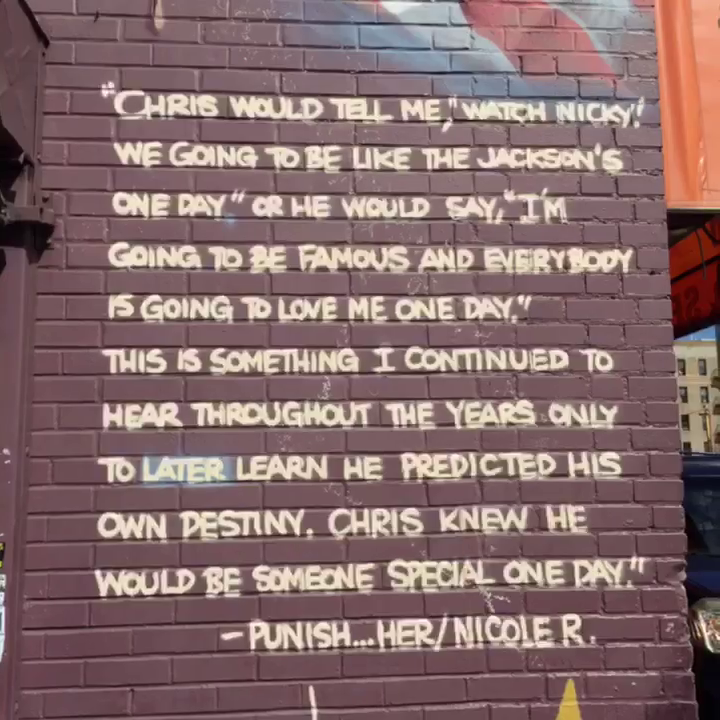 "CHRIS WOULD TELL ME," WATCH NICKY'!
WE GOING TO BE LIKE THE JACKSON'S
ONE DAY" OR HE WOULD SAY, "I'M
GOING TO BE FAMOUS AND EVERYBODY
IS GOING TO LOVE ME ONE DAY."
THIS IS SOMETHING I CONTINUED TO
HEAR THROUGHOUT THE YEARS ONLY
TO LATER LEARN HE PREDICTED HIS
OWN DESTINY. CHRIS KNEW HE
WOULD BE SOMEONE SPECIAL ONE DAY."
- PUNISH...HER/NICOLE R.